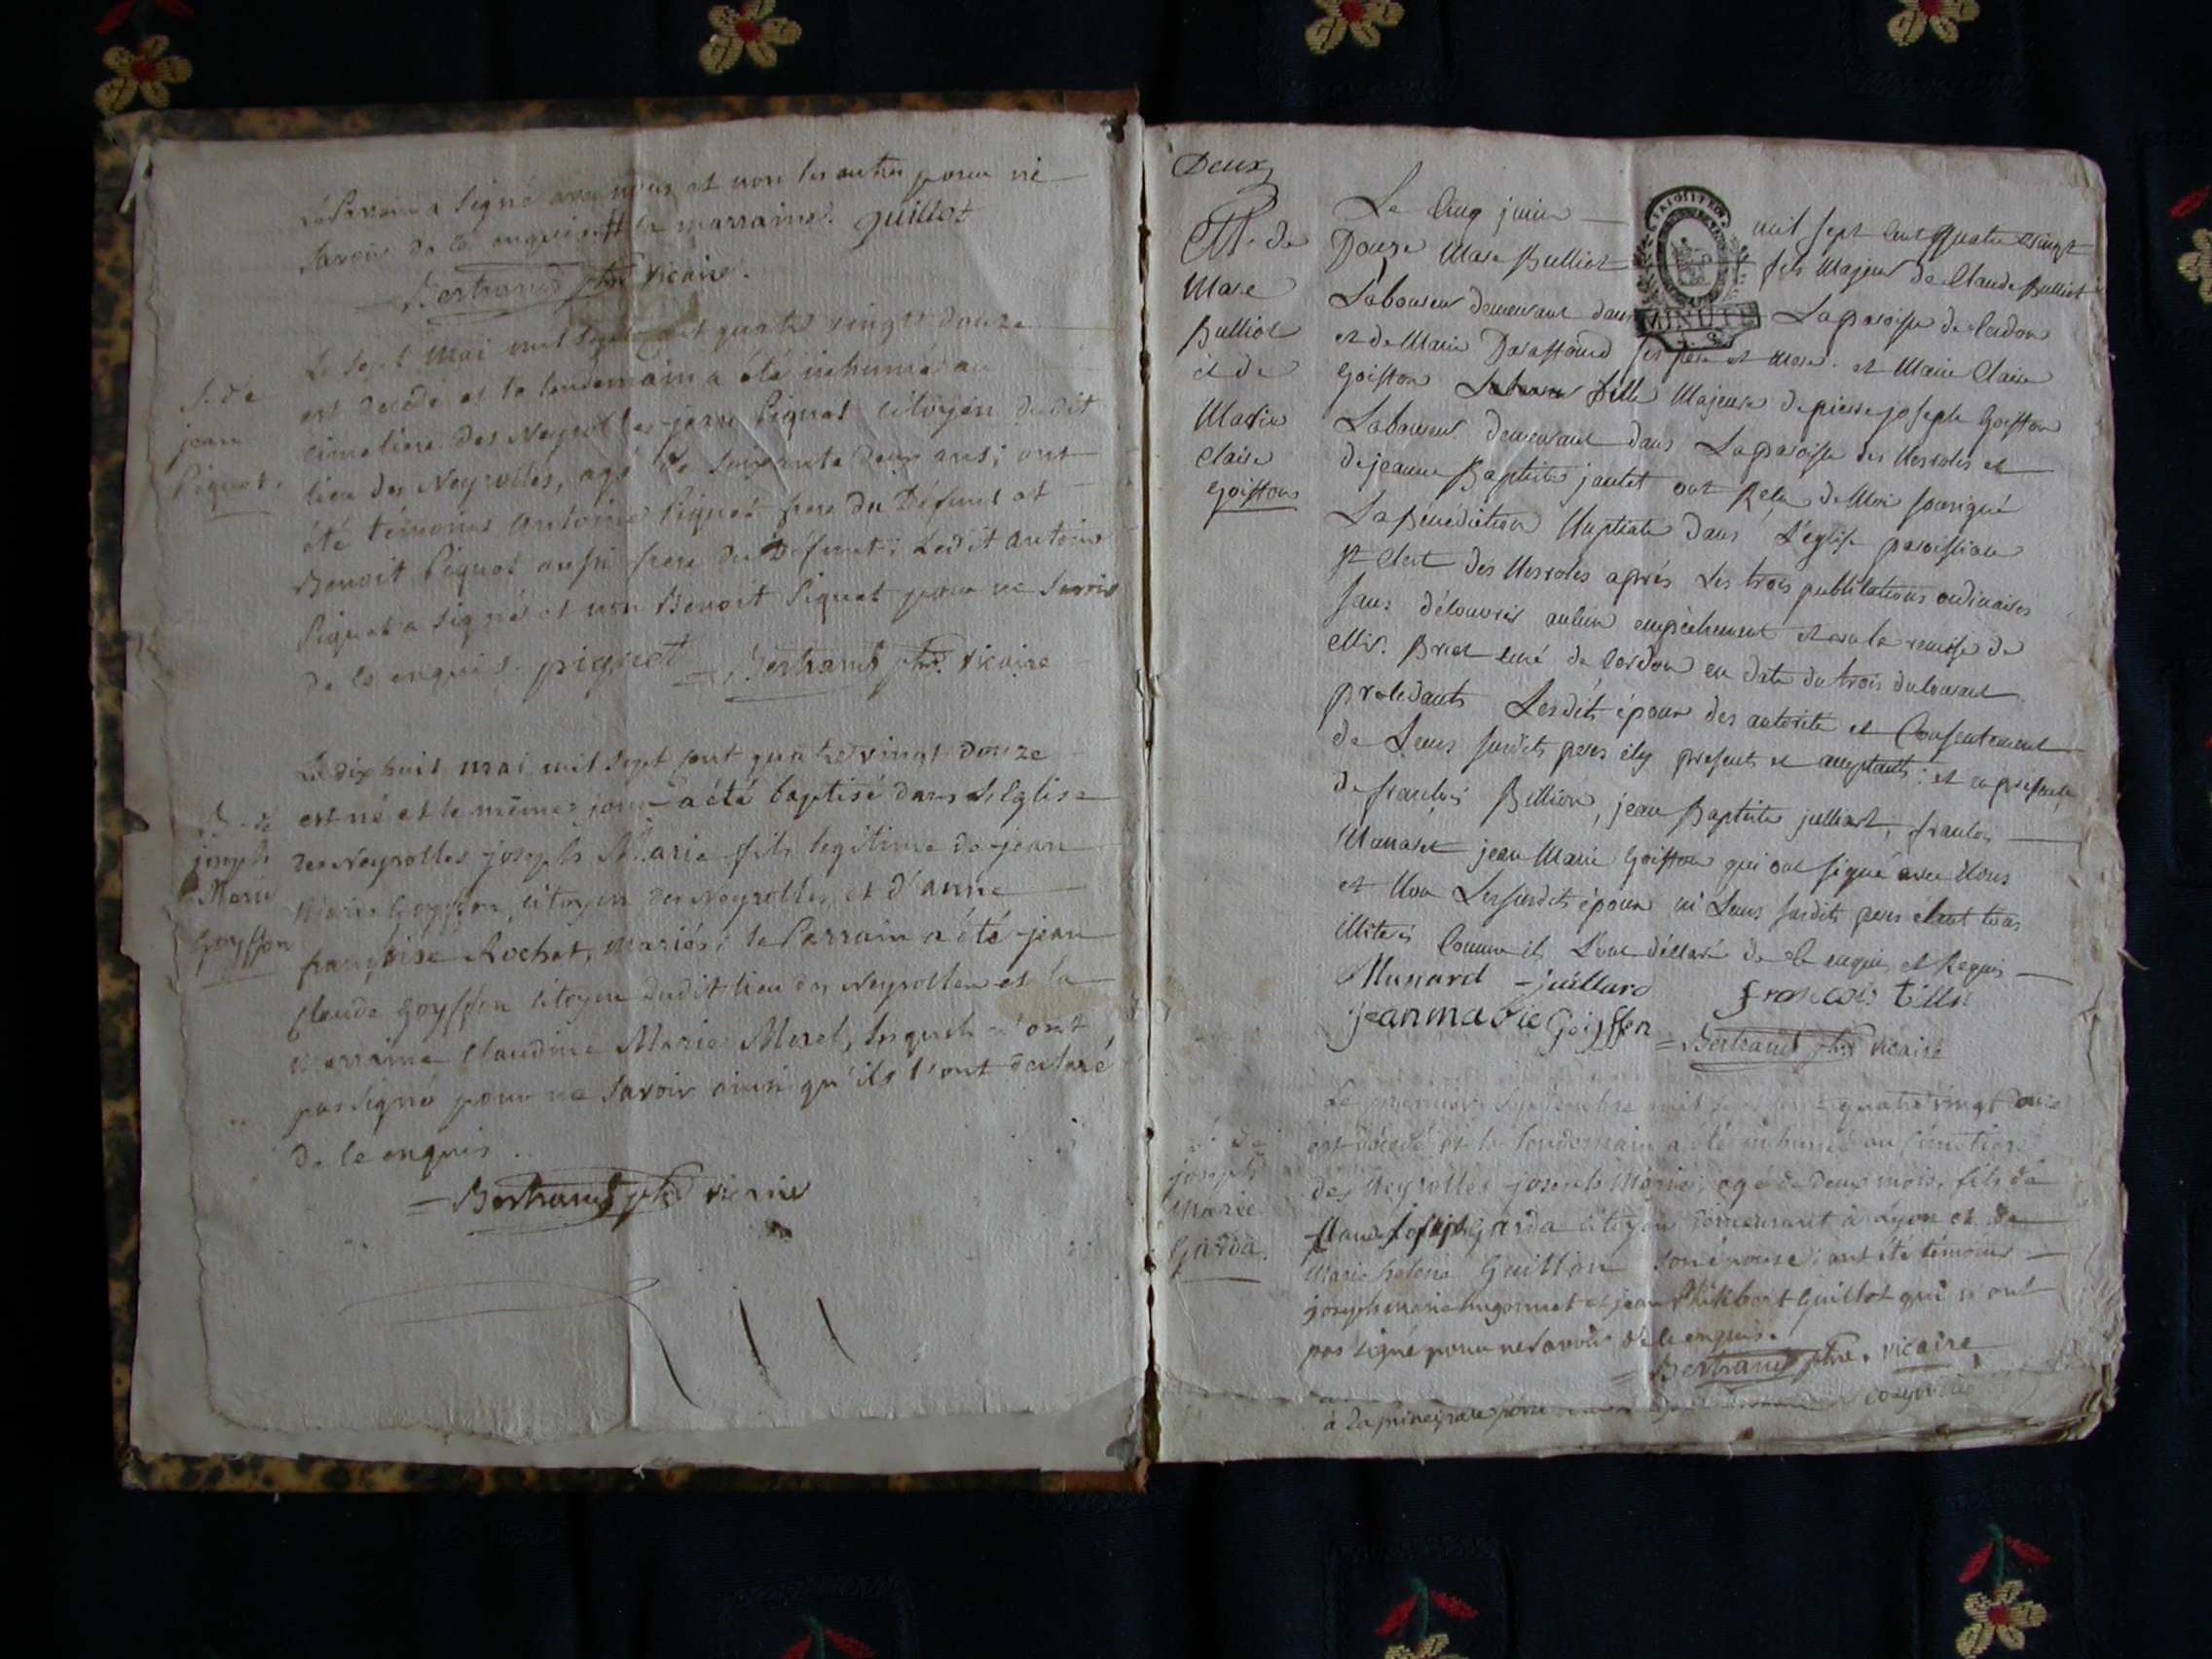 Le Parrain a signé avec nous et non les autres pour ne
savoir de ce enquis la marraine. guillot
Bertrand ptre vicaire.
S. de
jean
Piquet.
Le sept Mai mil sept cent quatre vingt douze
est decedé et le lendemain a été inhumé au
cimetiere des Neyrolles jean Piquet citoyen dudit
lieu des Neyrolles, agé de soixante deux ans; ont
été témoins antoine Piquet frere du Défunt et
Benoit Piquet aussi frere du Défunt; Ledit antoine
Piquet a signé et non Benoit Piquet pour ne savoir
de ce enquis. piquet Bertrand ptre. vicaire
B. de
joseph
Marie
Goyffon
Le dix huit mai mil sept cent quatre vingt douze
est né et le même jour a été baptisé dans L'Eglise
des Neyrolles joseph Marie fils legitime de jean
Marie Goyffon, citoyen des Neyrolles, et d'anne
françoise Rochat, mariés; le Parrain a été jean
Claude Goyffon citoyen dudit lieu des Neyrolles et la
Marraine Claudine Marie Morel, lesquels n'ont
pas signé pour ne savoir ainsi qu'ils l'ont declaré
de ce enquis.
Bertrand ptre vicaire
Deux
M. de
Marc
Bulliot
et de
Marie
claire
Goiffon
Le Cinq juin mil sept Cent quatre vingt
Douze Marc Bulliot fils Majeur de Claude Bulliot
MINUTE
Laboureur demeurant dans La paroisse de Cerdon
et de Marie ses père et mere. et Marie Claire
Goiffon fille Majeure de pierre joseph Goiffon
Laboureur demeurant dans La paroisse des Nerroles et
de jeanne Baptiste jantet ont Reçu de Moi soussigné
La Bénédiction Nuptiale dans L'église paroissiale
des Nerroles aprés Les trois publications ordinaires
sans découvrir aucun empêchement et vu la remise de
Mr. Briet curé de Cerdon en date du trois du Courant
procedants Lesdits époux des autorité et Consentement
de Leurs susdits peres icy presents et acceptants: et en présence
de françois Billion, jean Baptiste julliard, françois
Munard jean Marie Goiffon qui ont signé avec Nous
et Non Les susdits époux ni Leurs susdits peres étant tous
illiterés Comme ils L'ont déclaré de ce enquis et Requis
Munard - juillard françois
jean marie Goiffon Bertrand ptre vicaire
S. de
joseph
Marie
Garda.
Le premier septembre mil sept cent quatre vingt douze
est décedé et le lendemain a été inhumé au cimetiere
des Neyrolles joseph Marie, agé de deux mois, fils de
Claude joseph Garda citoyen demeurant à Lyon et de
Marie helene Guillon son épouse; ont été témoins
joseph marie hugonnet et jean Philibert Guillot qui n'ont
pas signé pour ne savoir de ce enquis.
Bertrand ptre. vicaire
à la principale porte